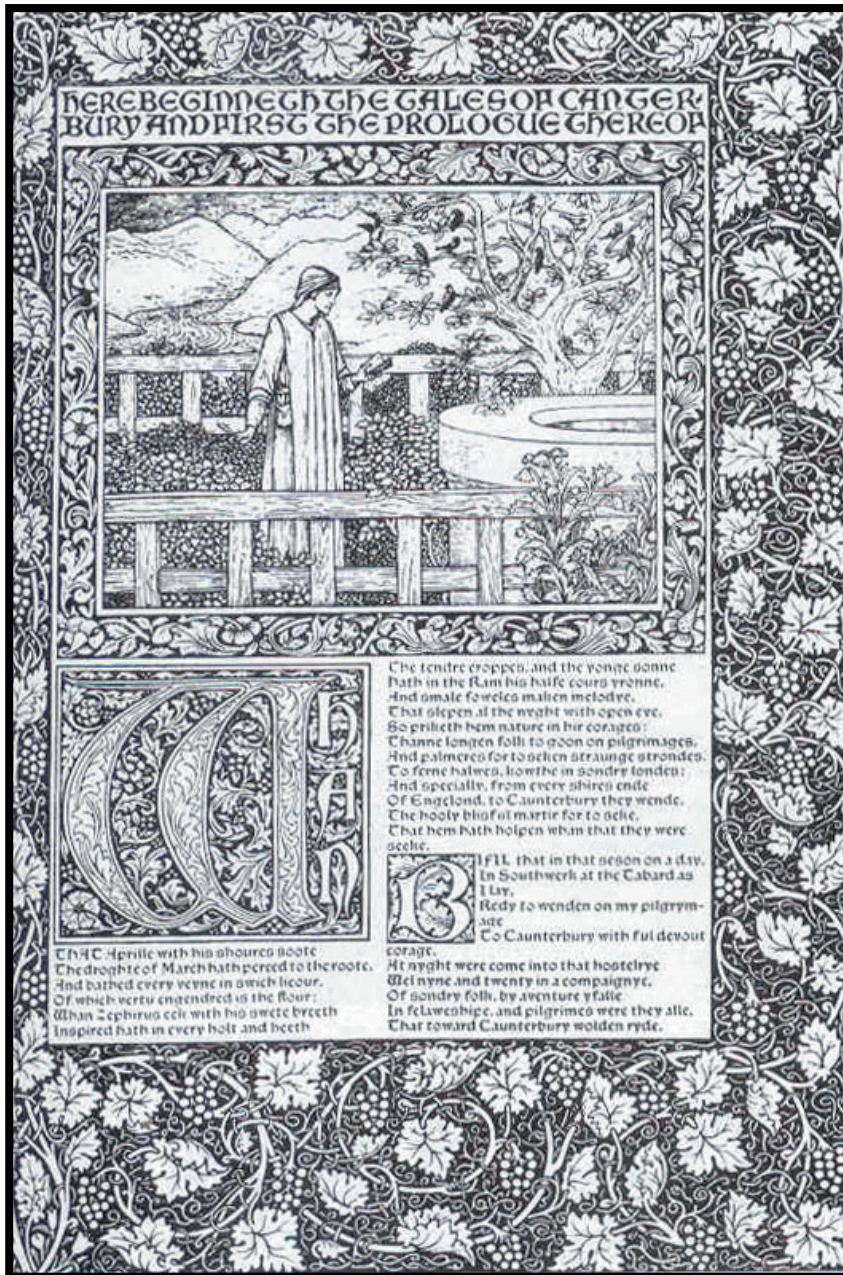 HERE BEGINNETH THE TALES OF CANTER-
BURY AND FIRST THE PROLOGUE THEREOF
WHAN
THAT Aprille with his shoures soote
The droghte of March hath perced to the roote,
And bathed every veyne in swich licour,
Of which vertu engendred is the flour;
Whan Zephirus eek with his swete breeth
Inspired hath in every holt and heeth
The tendre croppes, and the yonge sonne
Hath in the Ram his halfe cours yronne,
And smale foweles maken melodye,
That slepen al the nyght with open eye,
So priketh hem nature in hir corages;
Thanne longen folk to goon on pilgrimages,
And palmeres for to seken straunge strondes,
To ferne halwes, kowthe in sondry londes;
And specially, from every shires ende
Of Engelond, to Caunterbury they wende,
The hooly blisful martir for to seke,
That hem hath holpen whan that they were
seeke.
BIFIL that in that seson on a day,
In Southwerk at the Tabard as
I lay,
Redy to wenden on my pilgrym-
age
To Caunterbury with ful devout
corage,
At nyght were come into that hostelrye
Wel nyne and twenty in a compaignye,
Of sondry folk, by aventure yfalle
In felaweshipe, and pilgrimes were they alle,
That toward Caunterbury wolden ryde.